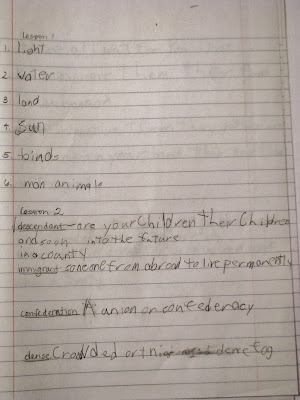 Lesson 1
1. Light
2. water
3 land
4. Sun
5. birds
6. man animale
Lesson 2
descendant - are your Children Their Children
and so on into the future
in a county
immigrant someone from abroad to live permanently
confederation A union or confederacy
dense Crowded or dence fog